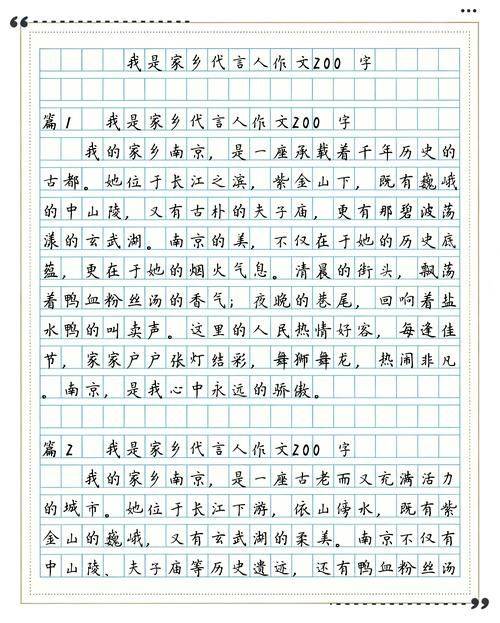 我是家乡代言人作文200 字
篇1 我是家乡代言人作文200 字
我的家乡南京，是一座承载着千年历史的
古都。她位于长江之滨，紫金山下，既有巍峨
的中山陵，又有古朴的夫子庙，更有那碧波荡
漾的玄武湖。南京的美，不仅在于她的历史底
蕴，更在于她的烟火气息。清晨的街头，飘荡
着鸭血粉丝汤的香气；夜晚的巷尾，回响着盐
水鸭的叫卖声。这里的人民热情好客，每逢佳
节，家家户户张灯结彩，舞狮舞龙，热闹非凡
。南京，是我心中永远的骄傲。
篇2 我是家乡代言人作文200 字
我的家乡南京，是一座古老而又充满活力
的城市。她位于长江下游，依山傍水，既有紫
金山的巍峨，又有玄武湖的柔美。南京不仅有
中山陵、夫子庙等历史遗迹，还有鸭血粉丝汤